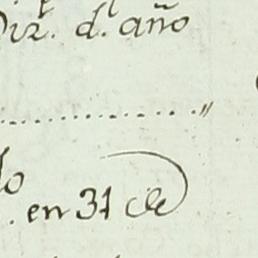 Diz.e d.l año
..................."
do
. en 31 de